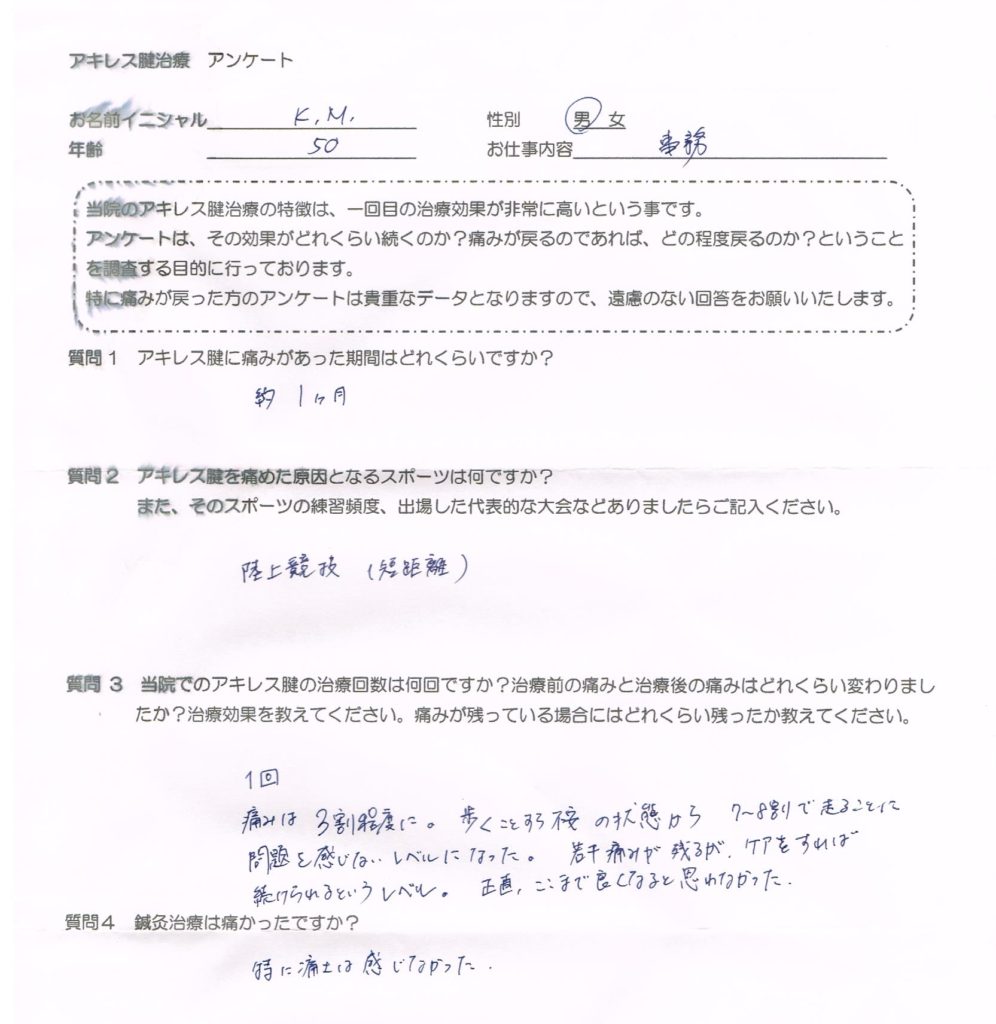 アキレス腱治療 アンケート
お名前イニシャル K.M. 性別 男 女
年齢 50 お仕事内容 事務
当院のアキレス腱治療の特徴は、一回目の治療効果が非常に高いという事です。
アンケートは、その効果がどれくらい続くのか？痛みが戻るのであれば、どの程度戻るのか？ということ
を調査する目的に行っております。
特に痛みが戻った方のアンケートは貴重なデータとなりますので、遠慮のない回答をお願いいたします。
質問1 アキレス腱に痛みがあった期間はどれくらいですか？
約 1ヶ月
質問2 アキレス腱を痛めた原因となるスポーツは何ですか？
また、そのスポーツの練習頻度、出場した代表的な大会などありましたらご記入ください。
陸上競技 (短距離)
質問3 当院でのアキレス腱の治療回数は何回ですか？治療前の痛みと治療後の痛みはどれくらい変わりまし
たか？治療効果を教えてください。痛みが残っている場合にはどれくらい残ったか教えてください。
1回
痛みは 3割程度に。歩くことすら の状態から 7〜8割で走ることに
問題を感じないレベルになった。若干痛みが残るが、ケアをすれば
続けられるというレベル。正直、ここまで良くなると思わなかった.
質問4 鍼灸治療は痛かったですか？
特に痛みは感じなかった.